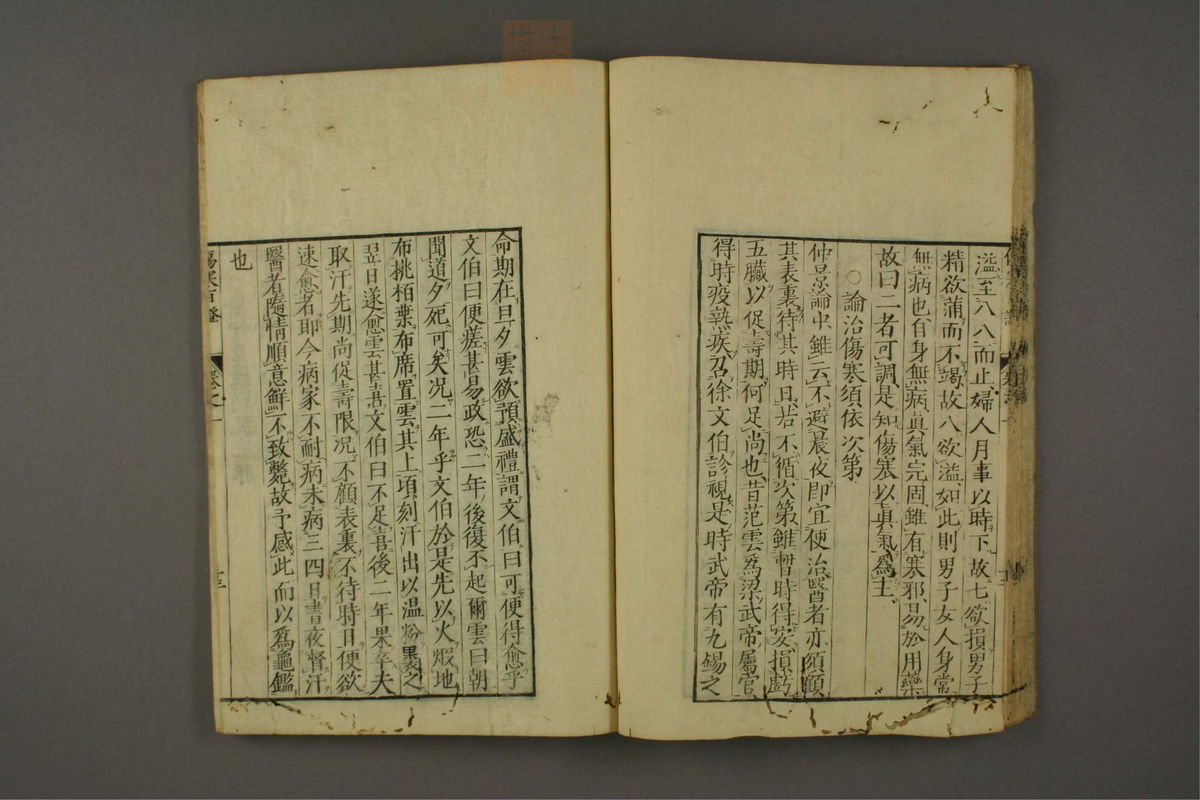 溢至八八而止婦人月事以時下故七欲損男子
精欲蒲而不竭故八欲溢如此則男子女人身常
無病也自身無病真氣完固雖有寒邪易於用藥
故曰二者可調是知傷寒以真氣爲主
○論治傷寒須依次第
仲景論中雖云不避晨夜即宜便治醫者亦須顧
其表裏待其時日若不循次第雖暫時得安損虧
五臟以促壽期何足尚也昔范雲爲梁武帝屬官
得時疫熱疾召徐文伯診視是時武帝有九錫之
命期在旦夕雲欲預盛禮謂文伯曰可便得愈乎
文伯曰便瘥甚易政恐二年後復不起爾雲曰朝
聞道夕死可矣况二年乎文伯於是先以火煆地
布桃栢葉布席置雲其上頃刻汗出以温粉裹之
翌日遂愈雲甚喜文伯曰不足喜後二年果卒夫
取汗先期尚促壽限况不顧表裏不待時日便欲
速愈者耶今病家不耐病未病三四日晝夜督汗
醫者隨情順意鮮不致斃故予感此而以爲龜鑑
也
傷寒百證
卷之一
十三